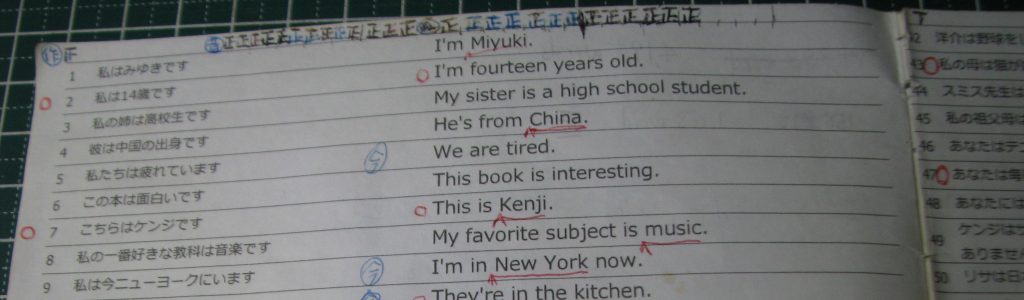 作 正
音 正正正正正正正正正正正正正正正正正正正正正
1 私はみゆきです I'm Miyuki.
2 私は14歳です I'm fourteen years old.
3 私の姉は高校生です My sister is a high school student.
4 彼は中国の出身です He's from China.
5 私たちは疲れています We are tired.
6 この本は面白いです This book is interesting.
7 こちらはケンジです This is Kenji.
8 私の一番好きな教科は音楽です My favorite subject is music.
9 私は今ニューヨークにいます I'm in New York now.
They're in the kitchen.
洋介は野球を
43 私の母は
44 スミス先生は
45 私の祖父母は
46 あなたはテ
47 あなたは毎
48 あなたには
49 ケンジは
ありません
50 リサは日